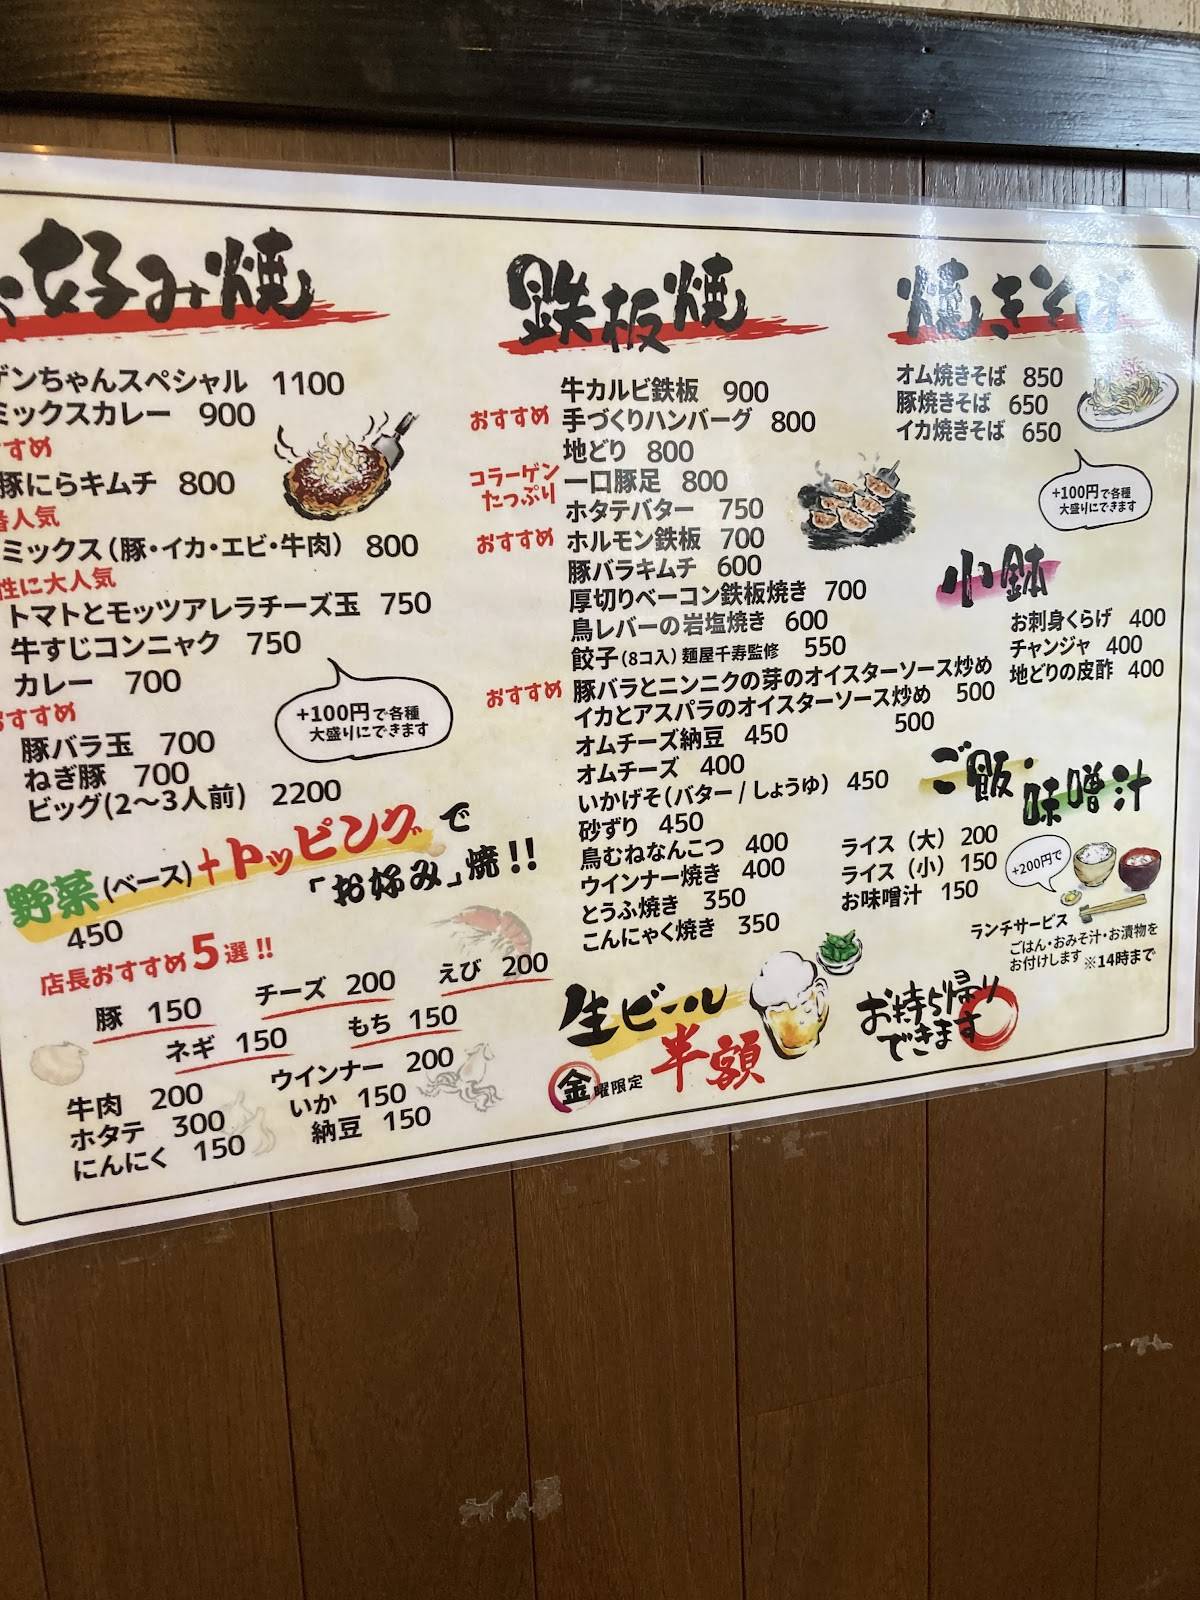 お好み焼
ゲンちゃんスペシャル 1100
ミックスカレー 900
すすめ
豚にらキムチ 800
番人気
ミックス(豚・イカ・エビ・牛肉) 800
性に大人気
トマトとモッツアレラチーズ玉 750
牛すじコンニャク 750
カレー 700
おすすめ
豚バラ玉 700
ねぎ豚 700
ビッグ(2〜3人前) 2200
+100円で各種
大盛りにできます
野菜(ベース)+トッピングで
「お好み」焼!!
450
店長おすすめ5選!!
豚 150 チーズ 200 えび 200
ネギ 150 もち 150
牛肉 200 ウインナー 200
ホタテ 300 いか 150
にんにく 150 納豆 150
鉄板焼
牛カルビ鉄板 900
おすすめ 手づくりハンバーグ 800
地どり 800
コラーゲン
たっぷり 一口豚足 800
ホタテバター 750
おすすめ ホルモン鉄板 700
豚バラキムチ 600
厚切りベーコン鉄板焼き 700
鳥レバーの岩塩焼き 600
餃子(8コ入)麺屋千寿監修 550
おすすめ 豚バラとニンニクの芽のオイスターソース炒め 500
イカとアスパラのオイスターソース炒め 500
オムチーズ納豆 450
オムチーズ 400
いかげそ(バター/しょうゆ) 450
砂ずり 450
鳥むねなんこつ 400
ウインナー焼き 400
とうふ焼き 350
こんにゃく焼き 350
生ビール
半額
金曜限定
焼きそば
オム焼きそば 850
豚焼きそば 650
イカ焼きそば 650
+100円で各種
大盛りにできます
小鉢
お刺身くらげ 400
チャンジャ 400
地どりの皮酢 400
ご飯・
味噌汁
ライス(大) 200
ライス(小) 150
お味噌汁 150
+200円で
ランチサービス
ごはん・おみそ汁・お漬物を
お付けします ※14時まで
お持ち帰り
できます